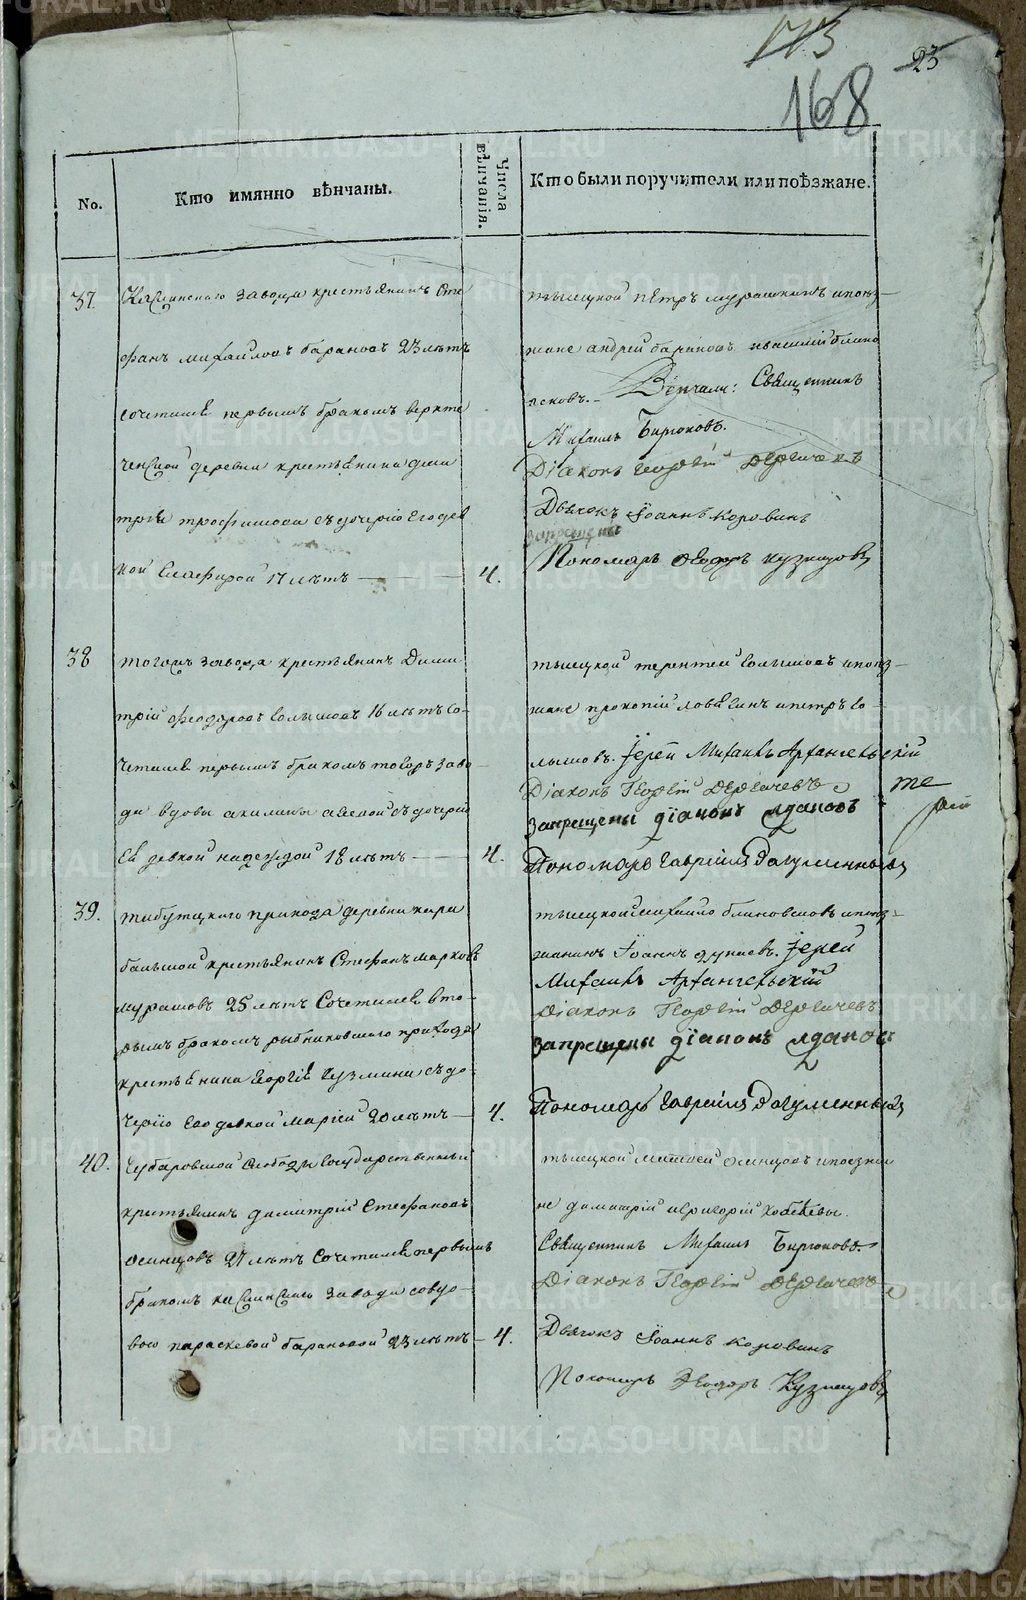 173
168
23
No.
Кто имянно вѣнчаны.
Числа вѣнчанія.
Кто были поручители или поѣзжане.
37.
Каслинскаго завода крестьянинъ Сте
фанъ михайловъ барановъ 23 лѣтъ
сочетался первымъ бракомъ верхте
ченской деревни крестьянина дми
трія трофимова съ дочерію его дев
кой Глафирой 17 лѣтъ
4.
тысецкой петръ мурашкинъ ипоѣз
жане андрей бариновъ
Вѣнчали: Священникъ
Михаилъ Бирюковъ.
Діаконъ Георгій Дергачевъ
Дьячокъ Іоаннъ Коровинъ
запрещены
Пономарь Ѳеодоръ Кузнецовъ
38
тогожъ завода крестьянинъ Дими
трій феодоровъ 16 лѣтъ со-
четался первымъ бракомъ тогожъ заво-
да вдовы акилины съ дочерію
Ея девкой надеждой 18 лѣтъ
4.
тысецкой терентей ипоѣз-
жане прокопій ипетръ
Іерей Михаилъ Архангельскій
Діаконъ Георгій Дергачевъ
запрещены діаконъ Ждановъ
те
Пономарь Гавриилъ
39.
прихода деревни кара
больской крестьянинъ Стефанъ марковъ
мурашовъ 25 лѣтъ Сочетался вто-
рымъ бракомъ рыбниковскаго прихода
крестьянина Георгія Кузмина съ до-
черію Его девкой маріей 20 лѣтъ
4.
тысецкой михайло блиновсковъ ипоѣз-
жанинъ Іоаннъ дунаевъ. Іерей
Михаилъ Архангельскій
Діаконъ Георгій Дергачевъ
запрещены діаконъ Ждановъ
Пономарь Гавриилъ
40.
Чубаровской слободы Государственный
крестьянинъ димитрій Стефановъ
осинцовъ 27 лѣтъ Сочетался первымъ
бракомъ каслинскаго завода совдо-
вою параскевой барановой 23 лѣтъ
4.
тысецкой матвей осинцовъ ипоезжа
не димитрій игригорій
Священникъ Михаилъ Бирюковъ.
Діаконъ Георгій Дергачевъ
Дьячокъ Іоаннъ Коровинъ
Пономарь Ѳеодоръ Кузнецовъ
METRIKI.GASO-URAL.RU